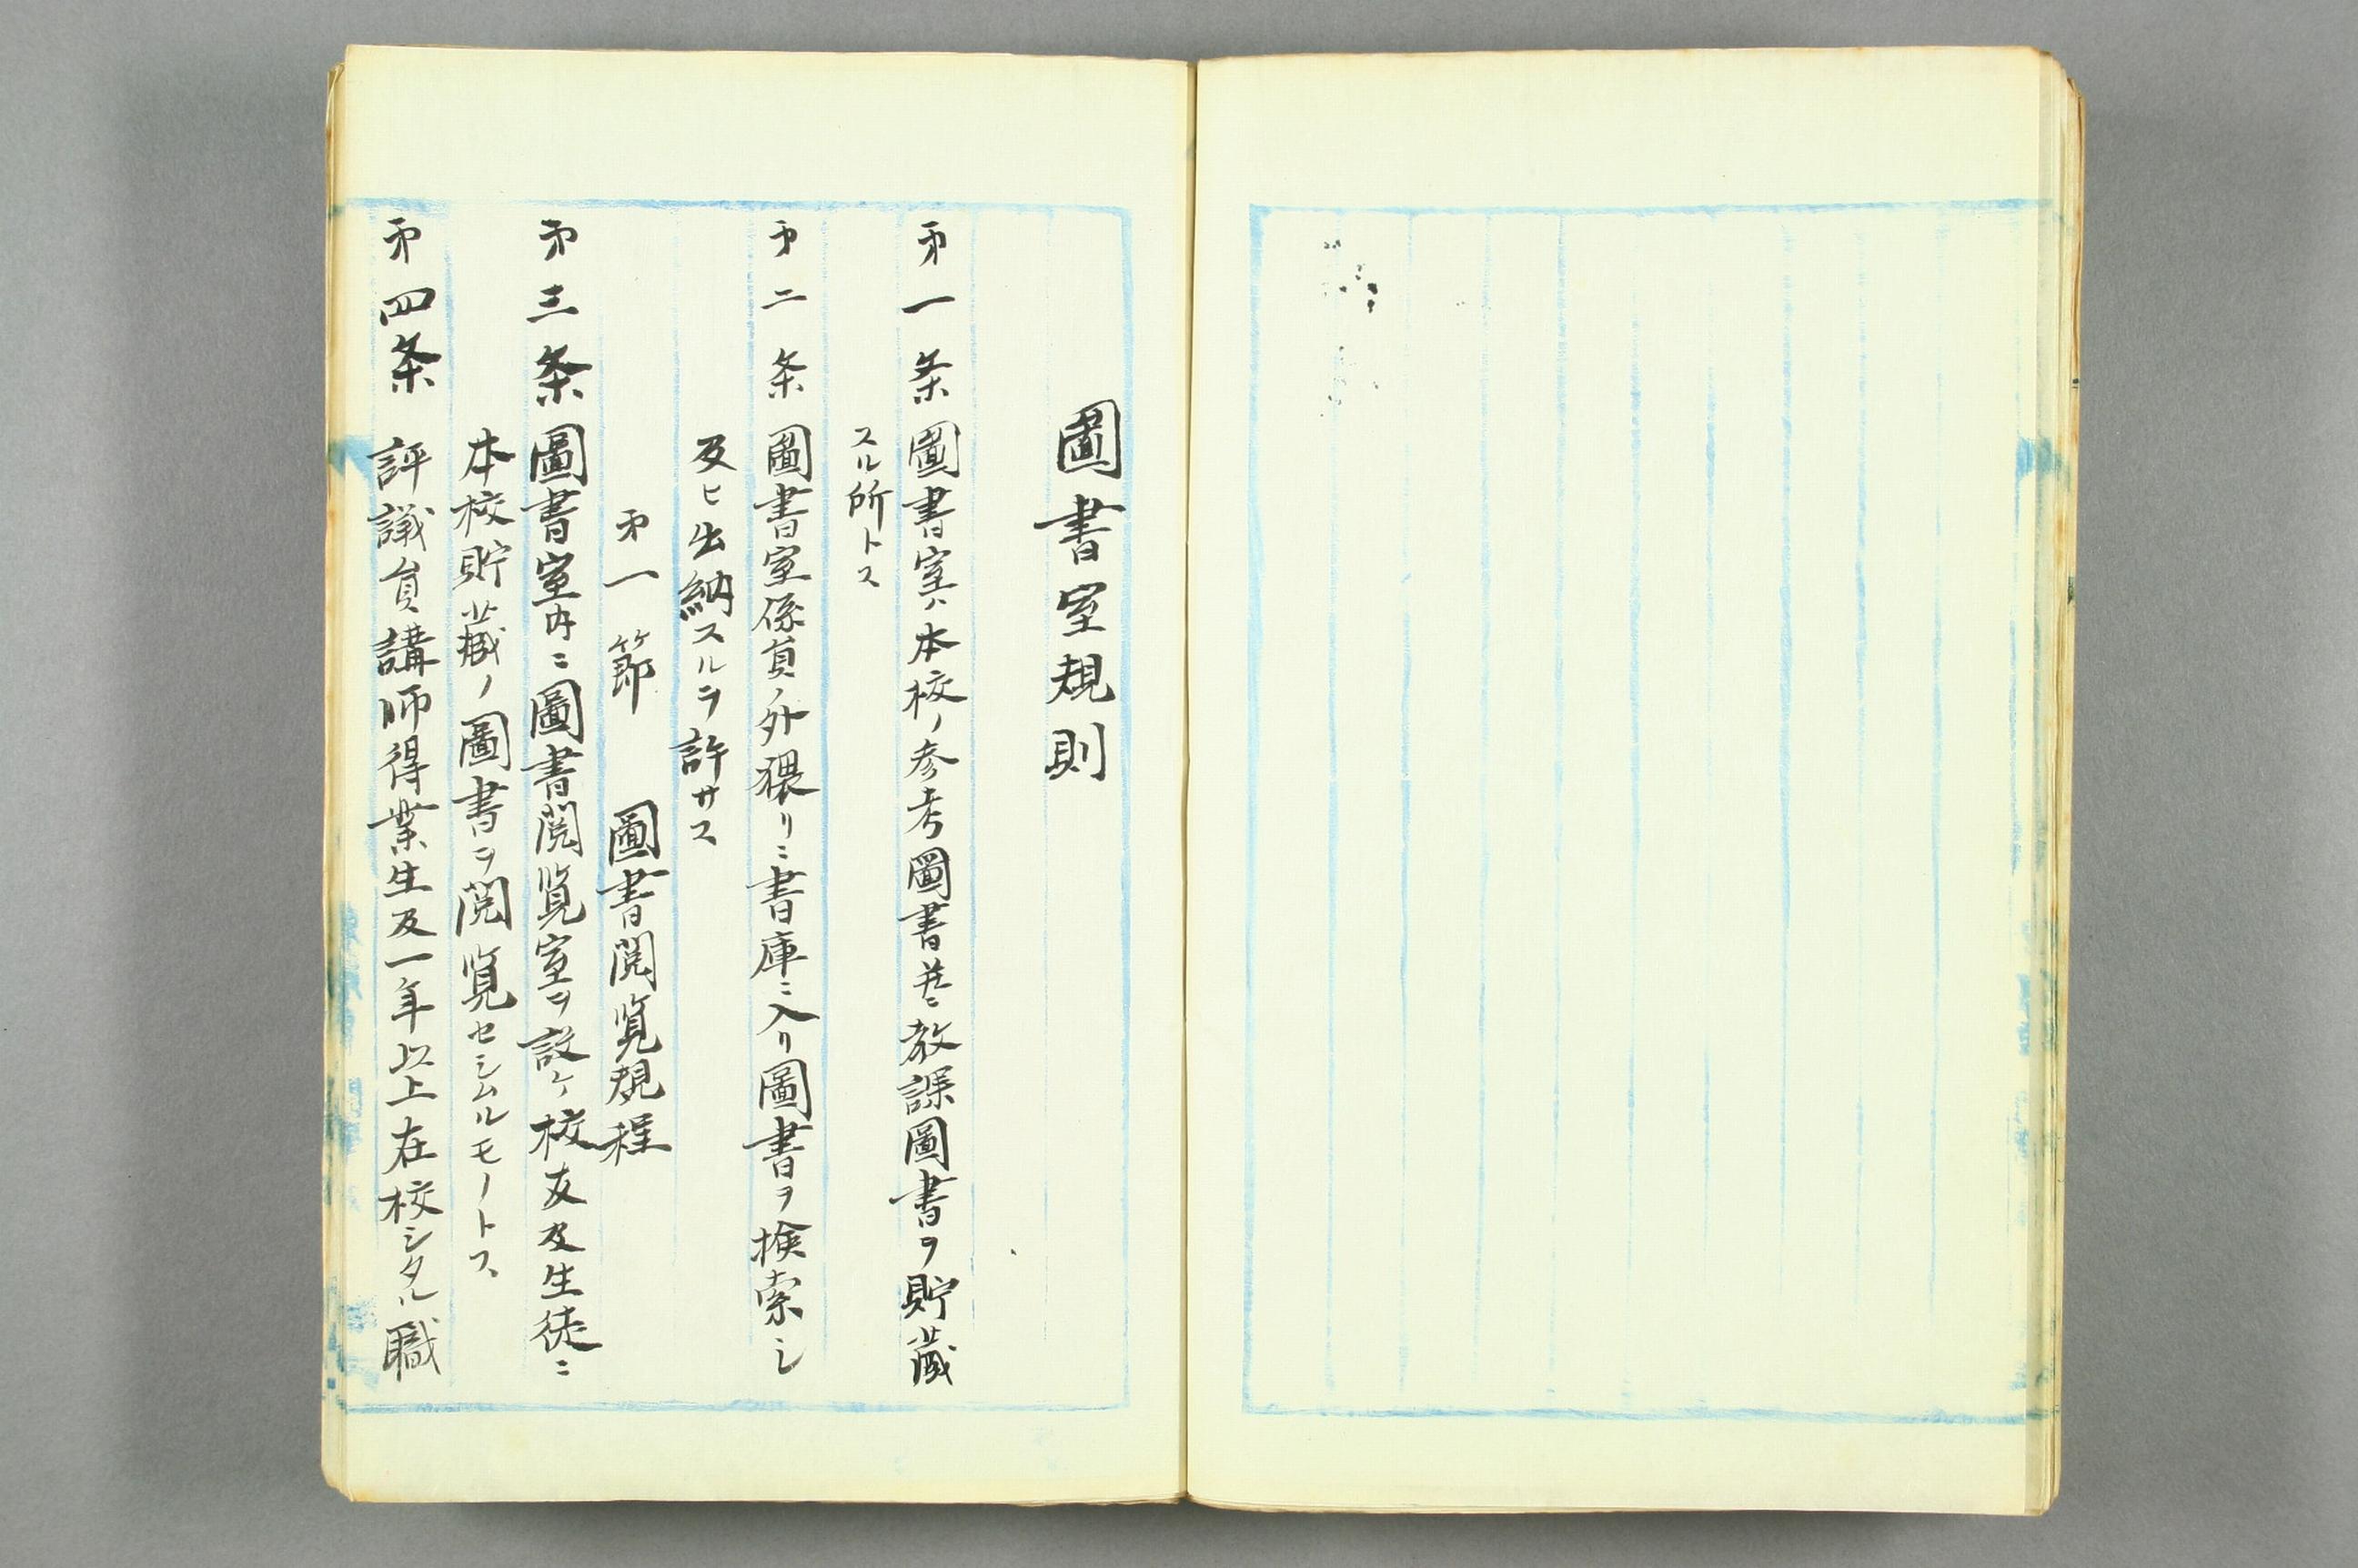 圖書室規則
第一条 圖書室ハ本校ノ参考圖書並ニ教課圖書ヲ貯藏
スル所トス
第二条 圖書室係員ノ外猥リニ書庫ニ入リ圖書ヲ検索シ
及ヒ出納スルヲ許サス
第一節 圖書閲覧規程
第三条 圖書室内ニ圖書閲覧室ヲ設ケ校友及生徒ニ
本校貯藏ノ圖書ヲ閲覧セシムルモノトス
第四条 評議員講師得業生及一年以上在校シタル職